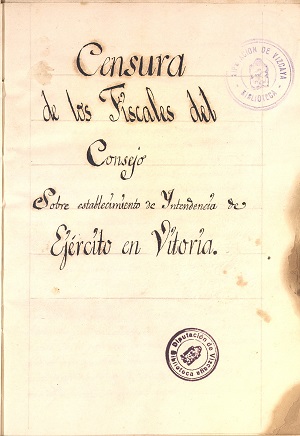 Censura
de los Fiscales del
Consejo
Sobre establecimiento de Yntendencia de
Ejército en Vitoria.
DIPUTACION DE VIZCAYA
BIBLIOTECA
Diputación de Vizcaya
Biblioteca